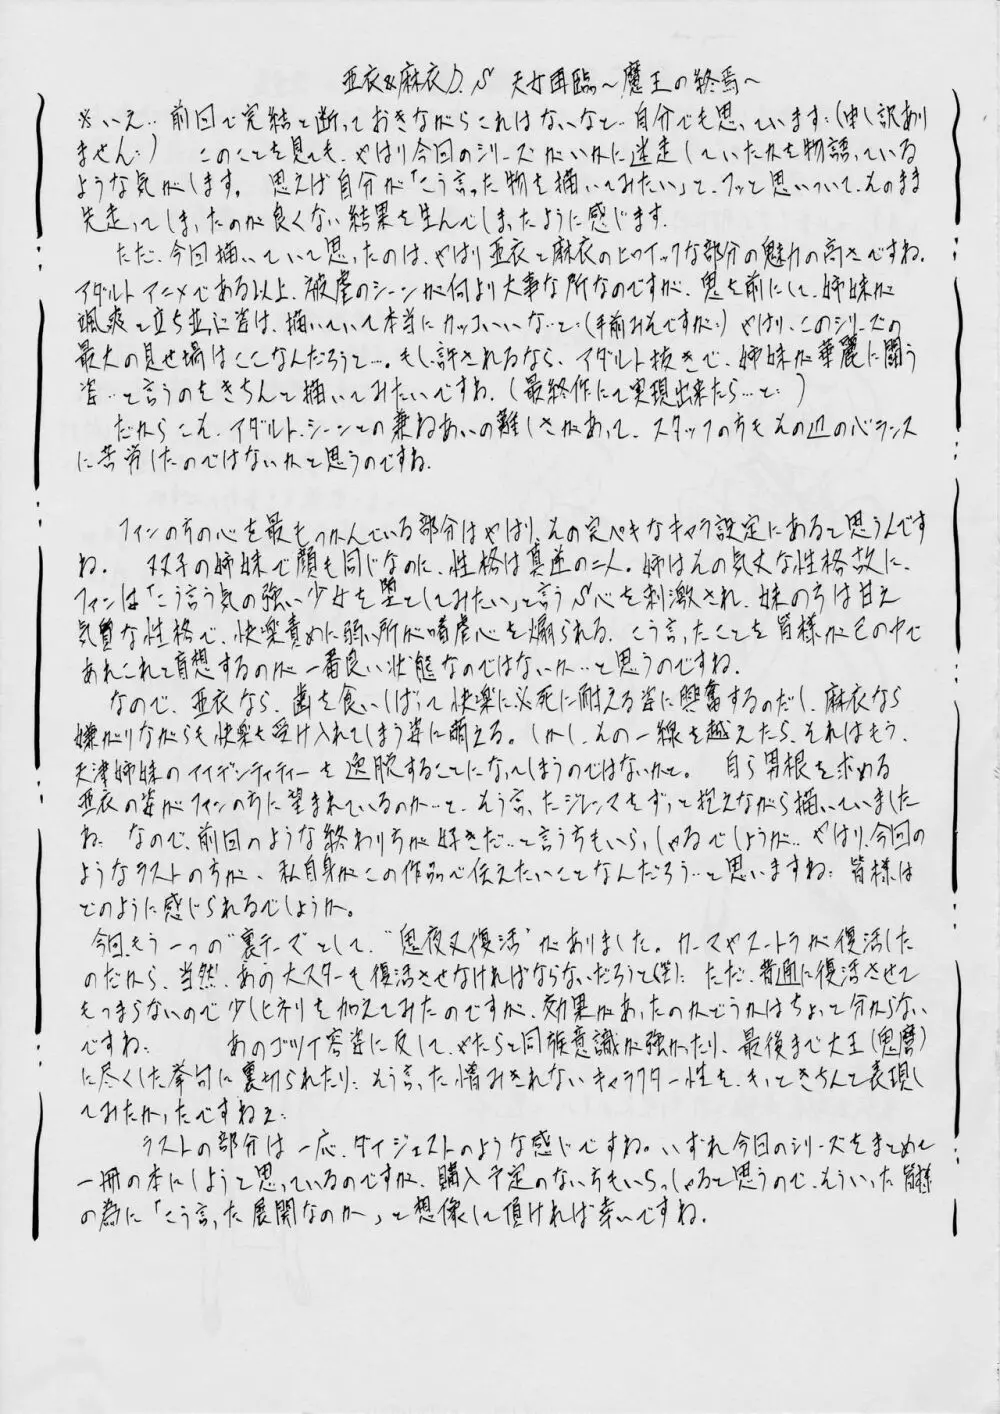 亜衣&麻衣D.S 天女再臨～魔王の終焉～
※いえ…前回で完結と断っておきながらこれはないなと…自分でも思っています:(申し訳あり
ません:)　このことを見ても、やはり今回のシリーズがいかに迷走していたかを物語っている
ような気がします。思えば自分が「こう言った物を描いてみたい」と、フッと思いついて、そのまま
先走ってしまったのが良くない結果を生んでしまったように感じます。
ただ、今回描いていて思ったのは、やはり亜衣と麻衣のヒロイックな部分の魅力の高さですね。
アダルトアニメである以上、被虐のシーンが何より大事な所なのですが、鬼を前にして、姉妹が
颯爽と立ち並ぶ姿は、描いていて本当にカッコいいな…と:(手前みそですが:)やはり、このシリーズの
最大の見せ場はここなんだろうと…。もし許されるなら、アダルト抜きで、姉妹が華麗に闘う
姿…と言うのをきちんと描いてみたいですね。(最終作にて実現出来たら…と:)
だからこそ、アダルト・シーンとの兼ねあいの難しさがあって、スタッフの方もその辺のバランス
に苦労したのではないかと思うのですね。
ファンの方の心を最もつかんでいる部分はやはり、その完ペキなキャラ設定にあると思うんです
ね。双子の姉妹で顔も同じなのに、性格は真逆の二人。姉はその気丈な性格故に、
ファンは「こう言う気の強い少女を堕としてみたい」と言うS心を刺激され、妹の方は甘え
気質な性格で、快楽責めに弱い所が嗜虐心を煽られる。こう言ったことを皆様が己の中で
あれこれと妄想するのが一番良い状態なのではないか…と思うのですね。
なので、亜衣なら、歯を食いしばって快楽に必死に耐える姿に興奮するのだし、麻衣なら
嫌がりながらも快楽を受け入れてしまう姿に萌える。しかし、その一線を越えたら、それはもう、
天津姉妹のアイデンティティーを逸脱することになってしまうのではないかと。自ら男根を求める
亜衣の姿がファンの方に望まれているのか…と、そう言ったジレンマをずっと抱えながら描いていました
ね:なので、前回のような終わり方が好きだ…と言う方もいらっしゃるでしょうが…やはり、今回の
ようなラストの方が、私自身がこの作品で伝えたいことなんだろう…と思いますね:皆様は
どのように感じられるでしょうか。
今回、もう一つの"裏テーマ"として、"鬼夜叉復活"がありました。カーマやスートラが復活した
のだから、当然、あの大スターも復活させなければならないだろうと(笑):ただ、普通に復活させて
もつまらないので少しヒネリを加えてみたのですが、効果があったのかどうかはちょっと分からない
ですね:　あのゴツイ容姿に反して、やたらと同族意識が強かったり、最後まで大王(鬼麿)
に尽くした挙句に裏切られたり:そう言った憎みきれないキャラクター性を、もっときちんと表現し
てみたかったですねぇ:
ラストの部分は一応、ダイジェストのような感じですね。いずれ今回のシリーズをまとめて
一冊の本にしようと思っているのですが、購入予定のない方もいらっしゃると思うので、そういった皆様
の為に「こう言った展開なのか」と想像して頂ければ幸いですね。